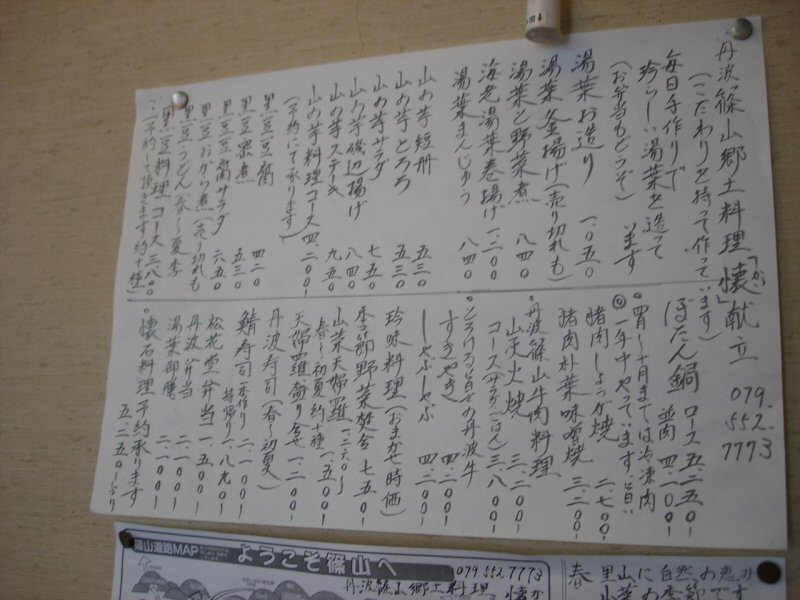 丹波篠山郷土料理「懐」献立
079.
552.
7773
(こだわりを持って作っています)
毎日手作りで
珍らしい湯葉を造って
います
(お弁当もどうぞ)
湯葉お造り 一、〇五〇
湯葉釜揚げ(売り切れも)
湯葉と野菜煮 八四〇
海老湯葉巻揚げ 一、二〇〇
湯葉まんじゅう 八四〇
山の芋短冊 五三〇
山の芋とろろ 五三〇
山の芋サラダ 七五〇
山の芋磯辺揚げ 八四〇
山の芋ステーキ 九五〇
山の芋料理コース 四、二〇〇-
(予約にて承ります)
黒豆豆腐 四二〇
黒豆蜜煮 五三〇
黒豆豆腐サラダ 六五〇
黒豆おから煮(売り切れも)
黒豆うどん(春〜夏季)
黒豆料理コース 三、八〇〇
(予約して頂きます約十種)
ぼたん鍋 ロース 五、二五〇-
並肉 四、二〇〇-
四月〜十月までは冷凍肉
一年中やっています 旨い
猪肉しょうが焼 二、七〇〇
猪肉朴葉味噌焼 三、二〇〇-
丹波篠山牛肉料理
山火焼 三、二〇〇-
コース(サラダ、ごはん) 三、八〇〇-
とろける旨さの丹波牛
すきやき 四、二〇〇-
しゃぶしゃぶ 四、二〇〇-
珍味料理(おまかせ時価)
季節野菜炊合 七五〇
山菜天婦羅 一、二六〇〜
春〜初夏約十種 一、五〇〇-
天婦羅盛り合せ 二、二〇〇-
丹波寿司(春〜初夏)
鯖寿司(一本作り) 二、一〇〇-
持帰り 一、八九〇-
松花堂弁当 一、五〇〇-
丹波弁当 二、一〇〇-
湯葉御膳 二、一〇〇-
懐石料理予約承ります
五、二五〇-より
篠山道路MAP
ようこそ篠山へ
079.552.7773
丹波篠山郷土料理 懐
春